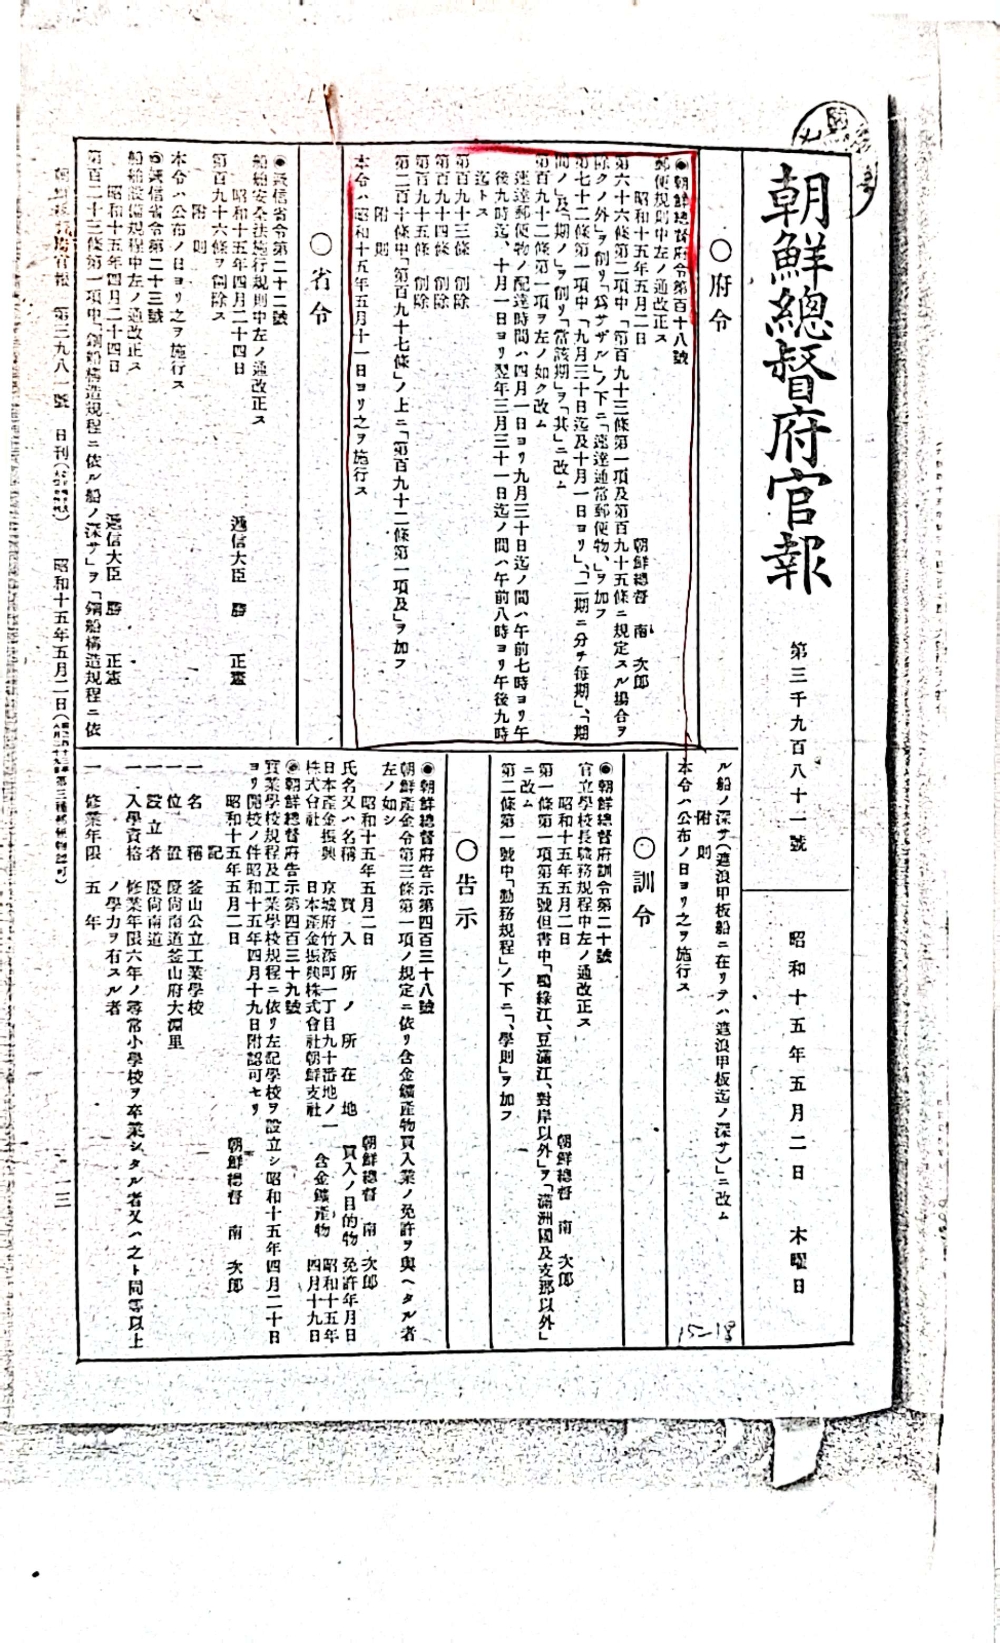 朝鮮總督府官報
第三千九百八十一號
昭和十五年五月二日 木曜日
○府令
◉朝鮮總督府令第百十八號
郵便規則中左ノ通改正ス
昭和十五年五月二日
朝鮮總督 南 次郎
第六十六條第二項中「第百九十三條第一項及第百九十五條ニ規定スル場合ヲ
除クノ外」ヲ削リ「爲サザル」ノ下ニ「速達通常郵便物、」ヲ加フ
第七十二條第一項中「九月三十日迄及十月一日ヨリ」、「二期ニ分チ每期」、「期
間ノ」及「期ノ」ヲ削リ「當該期」ヲ「其」ニ改ム
第百九十二條第一項ヲ左ノ如ク改ム
速達郵便物ノ配達時間ハ四月一日ヨリ九月三十日迄ノ間ハ午前七時ヨリ午
後九時迄、十月一日ヨリ翌年三月三十一日迄ノ間ハ午前八時ヨリ午後九時
迄トス
第百九十三條 削除
第百九十四條 削除
第百九十五條 削除
第二百十條中「第百九十七條」ノ上ニ「第百九十二條第一項及」ヲ加フ
附則
本令ハ昭和十五年五月十一日ヨリ之ヲ施行ス
○省令
◉遞信省令第二十二號
船舶安全法施行規則中左ノ通改正ス
昭和十五年四月二十四日
遞信大臣 勝 正憲
第百九十六條ヲ削除ス
附則
本令ハ公布ノ日ヨリ之ヲ施行ス
◉遞信省令第二十三號
船舶設備規程中左ノ通改正ス
昭和十五年四月二十四日
遞信大臣 勝 正憲
第百二十三條第一項中「鋼船構造規程ニ依ル船ノ深サ」ヲ「鋼船構造規程ニ依
ル船ノ深サ(遮浪甲板船ニ在リテハ遮浪甲板迄ノ深サ)」ニ改ム
附則
本令ハ公布ノ日ヨリ之ヲ施行ス
15-18
○訓令
◉朝鮮總督府訓令第二十號
官立學校長職務規程中左ノ通改正ス
昭和十五年五月二日
朝鮮總督 南 次郎
第一條第一項第五號但書中「鴨綠江、豆滿江、對岸以外」ヲ「滿洲國及支那以外」
ニ改ム
第二條第一號中「勤務規程」ノ下ニ「、學則」ヲ加フ
○告示
◉朝鮮總督府告示第四百三十八號
朝鮮產金令第三條第一項ノ規定ニ依リ含金鑛產物買入業ノ免許ヲ與ヘタル者
左ノ如シ
昭和十五年五月二日
朝鮮總督 南 次郎
氏名又ハ名稱 買入所ノ所在地 買入ノ目的物 免許年月日
日本產金振興 京城府竹添町一丁目九十番地ノ一 昭和十五年
株式會社 日本產金振興株式會社朝鮮支社 含金鑛產物 四月十九日
◉朝鮮總督府告示第四百三十九號
實業學校規程及工業學校規程ニ依リ左記學校ヲ設立シ昭和十五年四月二十日
ヨリ開校ノ件昭和十五年四月十九日附認可セリ
昭和十五年五月二日
朝鮮總督 南 次郎
記
一 名稱 釜山公立工業學校
一 位置 慶尙南道釜山府大淵里
一 設立者 慶尙南道
一 入學資格 修業年限六年ノ尋常小學校ヲ卒業シタル者又ハ之ト同等以上
ノ學力ヲ有スル者
一 修業年限 五年
朝鮮總督府官報 第三九八一號 日刊
昭和十五年五月二日
一三